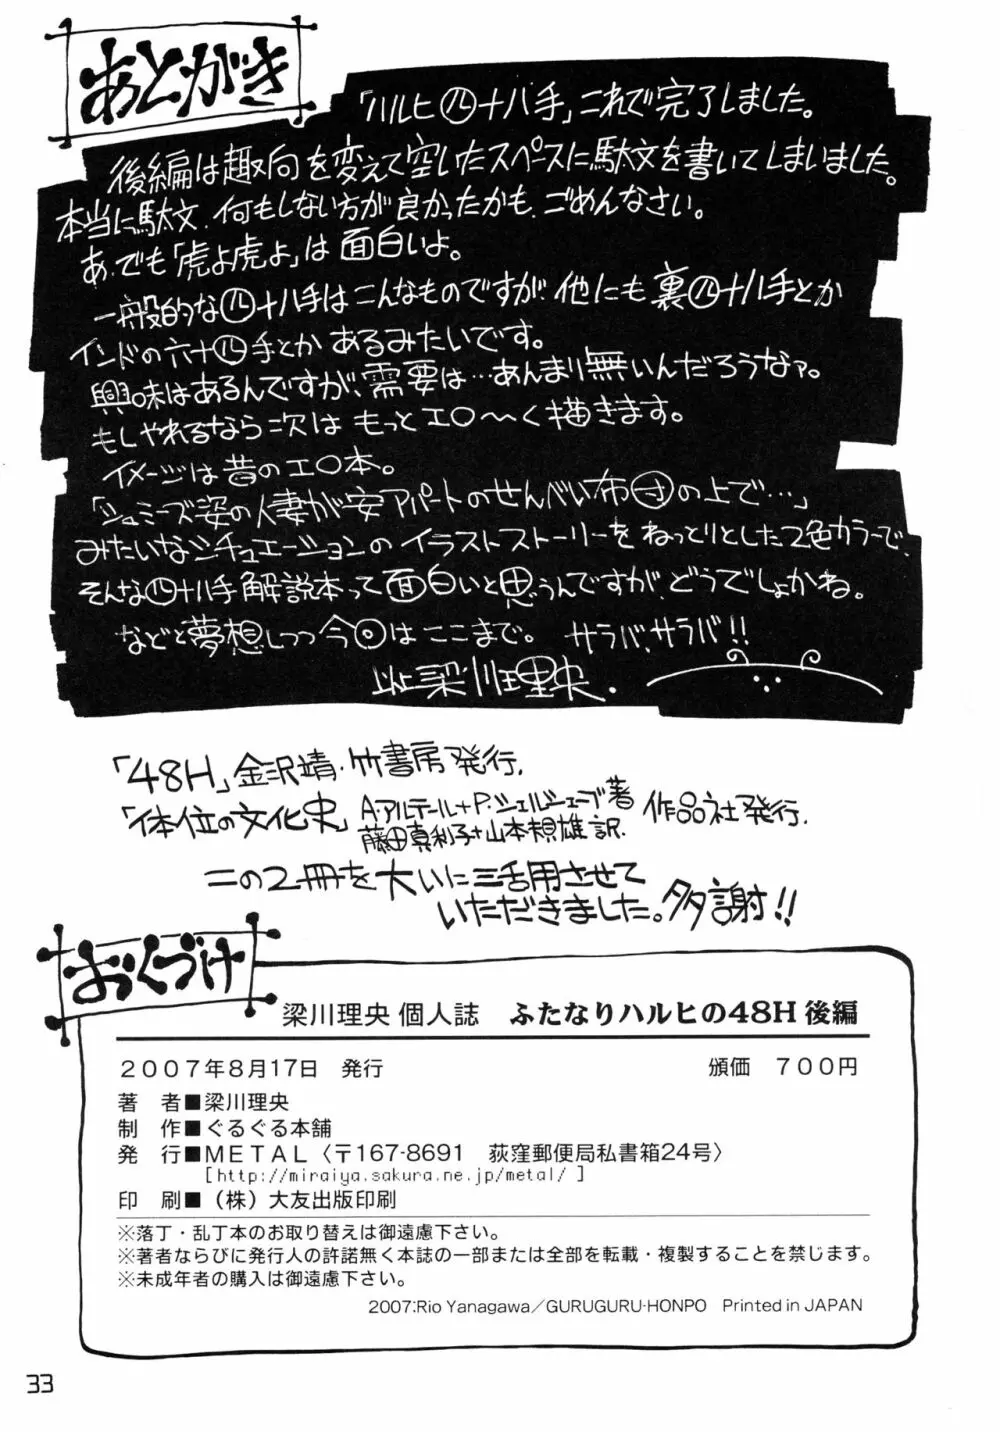 あとがき
「ハルヒ㊃十八手」これで完了しました。
後編は趣向を変えて空いたスペースに駄文を書いてしまいました。
本当に駄文、何もしない方が良かったかも、ごめんなさい。
あ、でも「虎よ虎よ」は面白いよ。
一般的な㊃十八手はこんなものですが、他にも裏㊃十八手とか
インドの六十㊃手とかあるみたいです。
興味はあるんですが、需要は…あんまり無いんだろうなァ。
もしやれるなら次はもっとエ〇〜く描きます。
イメージは昔のエ〇本。
「シュミーズ姿の人妻が安アパートのせんべい布団の上で…」
みたいなシチュエーションのイラストストーリーをねっとりとした2色カラーで、
そんな㊃十八手解説本って面白いと思うんですが、どうでしょかね。
などと夢想しつつ今回はここまで。 サラバ、サラバ!!
以上梁川理央.
「48H」金沢靖・竹書房発行.
「体位の文化史」A・アルテール+P・シェルシェーブ著
藤田真利子+山本規雄訳. 作品社発行.
この2冊を大いに活用させて
いただきました。多謝!!
おくづけ
梁川理央 個人誌 ふたなりハルヒの48H 後編
2007年8月17日 発行 頒価 700円
著 者■梁川理央
制 作■ぐるぐる本舗
発 行■METAL〈〒167-8691 荻窪郵便局私書箱24号〉
[http://miraiya.sakura.ne.jp/metal/ ]
印 刷■（株）大友出版印刷
※落丁・乱丁本のお取り替えは御遠慮下さい。
※著者ならびに発行人の許諾無く本誌の一部または全部を転載・複製することを禁じます。
※未成年者の購入は御遠慮下さい。
2007:Rio Yanagawa／GURUGURU-HONPO Printed in JAPAN
33